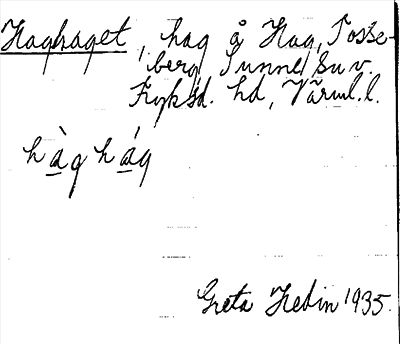 Haghaget, hag å Hag, Posse-
berg, Sunne, Su v.
Fryksd. hd, Värml. l.
hàg hág
Greta Hedin 1935.